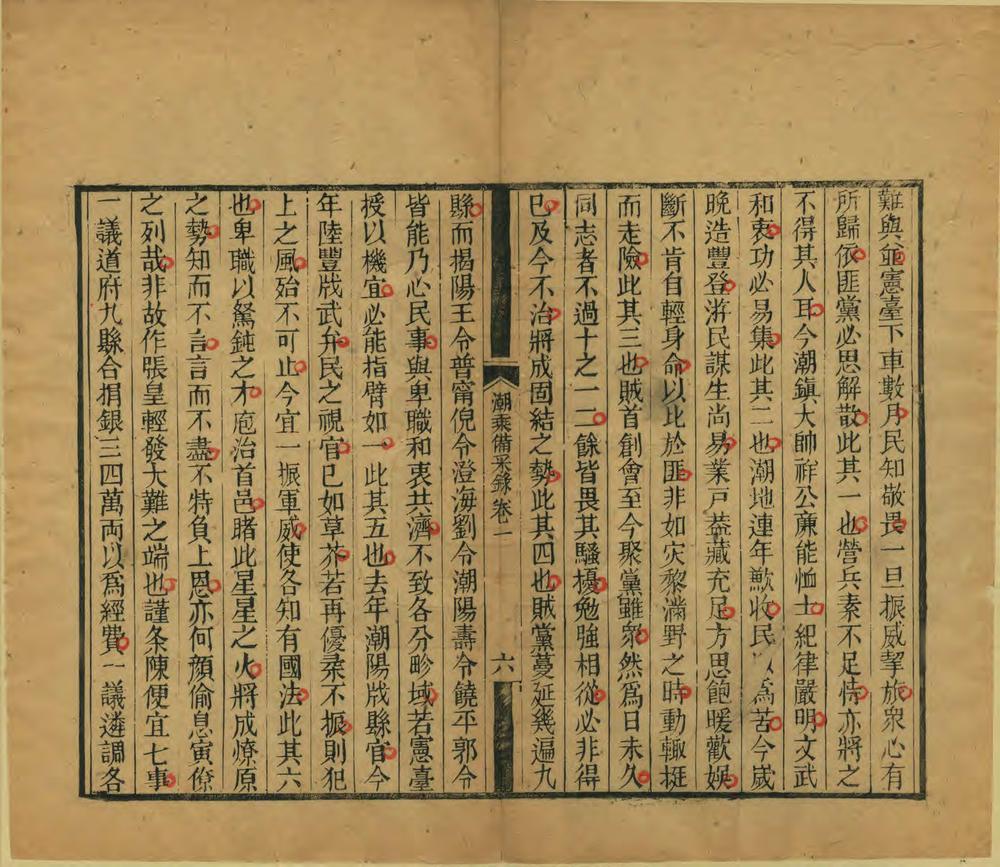 難與並憲臺下車數月民知敬畏一旦振威挈旅衆心有
所歸依匪黨必思解散此其一也營兵素不足恃亦將之
不得其人耳今潮鎮大帥祥公廉能恤士紀律嚴明文武
和衷功必易集此其二也潮地連年歉收民以為苦今歲
晚造豐登游民謀生尚易業戶蓋藏充足方思飽暖歡娛
斷不肯自輕身命以比於匪非如灾黎滿野之時動輒挺
而走險此其三也賊首創會至今聚黨雖衆然為日未久
同志者不過十之一二餘皆畏其騷擾勉強相從必非得
已及今不治將成固結之勢此其四也賊黨蔓延幾遍九
潮乘備采錄卷一
六
縣而揭陽王令普甯倪令澄海劉令潮陽壽令饒平郭令
皆能乃心民事與卑職和衷共濟不致各分畛域若憲臺
授以機宜必能指臂如一此其五也去年潮陽戕縣官今
年陸豐戕武弁民之視官已如草芥若再優柔不振則犯
上之風殆不可止今宜一振軍威使各知有國法此其六
也卑職以駑鈍之才庖治首邑睹此星星之火將成燎原
之勢知而不言言而不盡不特負上恩亦何顏偷息寅僚
之列哉非故作張皇輕發大難之端也謹条陳便宜七事
一議道府九縣合捐銀三四萬両以為經費一議遴調各